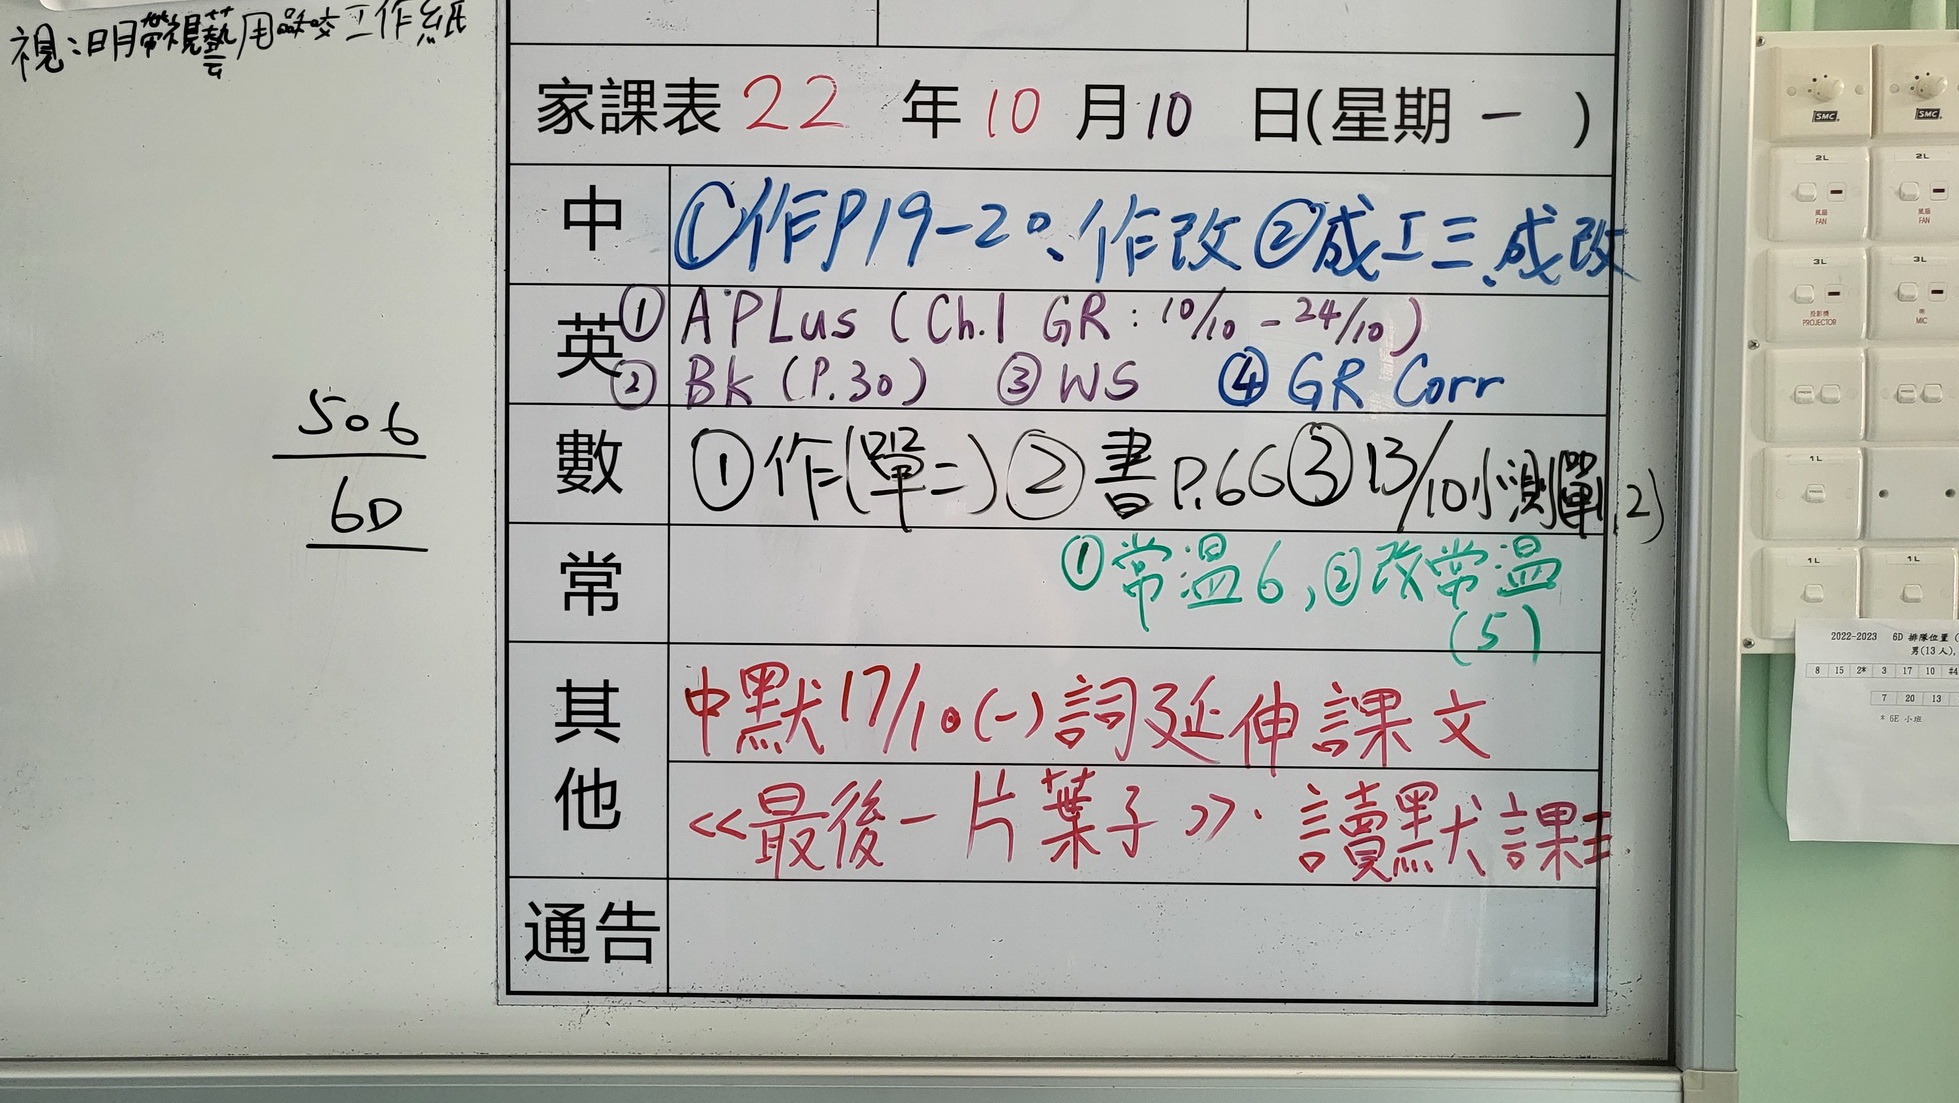 視:明帶視藝用品交工作紙
家課表 22 年 10 月 10 日(星期 一 )
中 ①作P19-20、作改 ②成工三、成改
英 ① APLus (Ch.1 GR : 10/10 - 24/10)
② BK (P.30) ③ WS ④ GR Corr
506
6D
數 ①作(單二) ②書P.66 ③13/10小測(單1,2)
常 ①常溫6,②改常溫
(5)
其他
中默17/10(一)詞延伸課文
<<最後一片葉子>>. 讀默課三
通告
SMC
SMC
2L
2L
風扇
FAN
風扇
FAN
3L
3L
投影機
PROJECTOR
咪
MIC
1L
1L
1L
2022-2023 6D 排隊位置
男(13人),
8 15 2* 3 17 10 #4
7 20 13
* 6E 小班